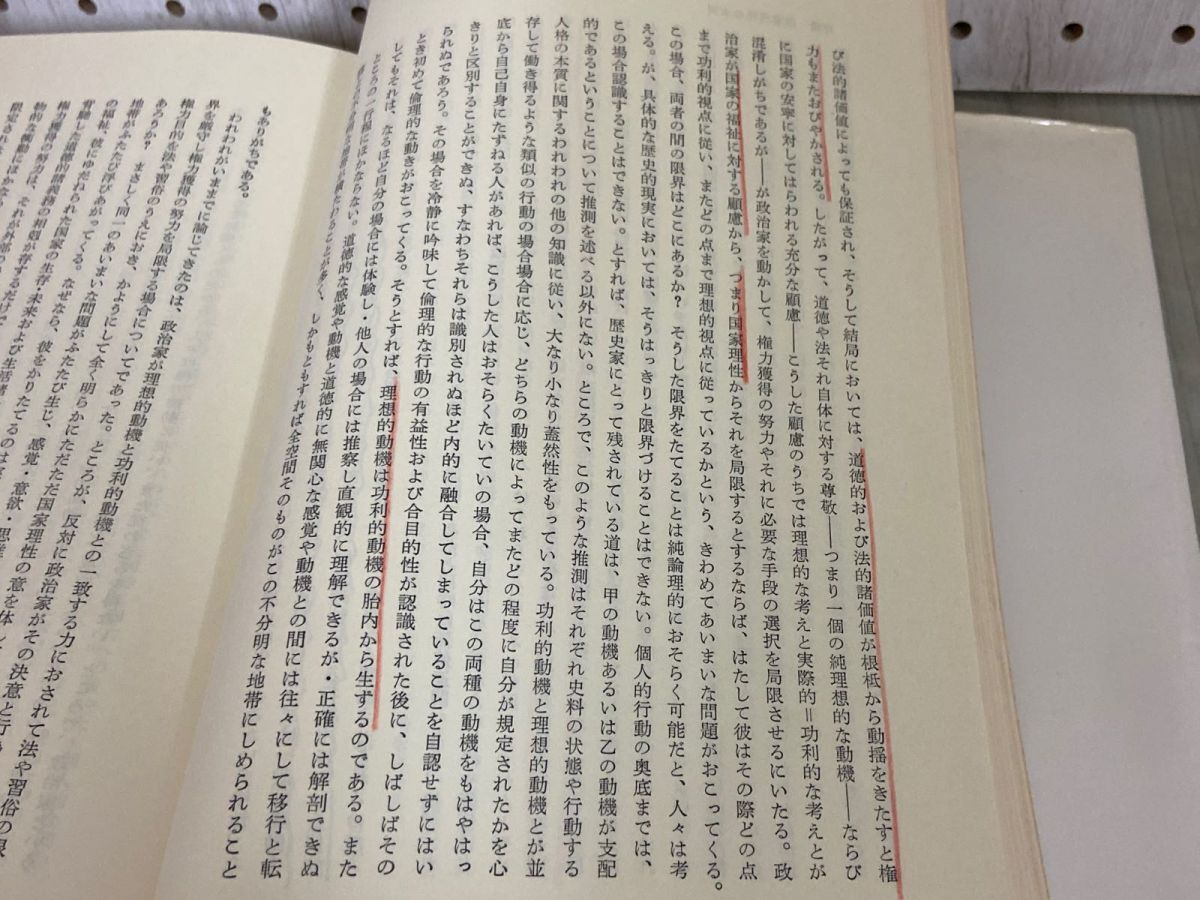 び法的諸価値によっても保証され、そうして結局においては、道徳的および法的諸価値が根柢から動揺をきたすと権
力もまたおびやかされる。したがって、道徳や法それ自体に対する尊敬――つまり一個の純理想的な動機――ならび
に国家の安寧に対してはらわれる充分な顧慮――こうした顧慮のうちでは理想的な考えと実際的＝功利的な考えとが
混淆しがちであるが――が政治家を動かして、権力獲得の努力やそれに必要な手段の選択を局限させるにいたる。政
治家が国家の福祉に対する顧慮から、つまり国家理性からそれを局限するとするならば、はたして彼はその際どの点
まで功利的視点に従い、またどの点まで理想的視点に従っているかという、きわめてあいまいな問題がおこってくる。
この場合、両者の間の限界はどこにあるか？　そうした限界をたてることは純論理的におそらく可能だと、人々は考
える。が、具体的な歴史的現実においては、そうはっきりと限界づけることはできない。個人的行動の奥底までは、
この場合認識することはできない。とすれば、歴史家にとって残されている道は、甲の動機あるいは乙の動機が支配
的であるということについて推測を述べる以外にない。ところで、このような推測はそれぞれ史料の状態や行動する
人格の本質に関するわれわれの他の知識に従い、大なり小なり蓋然性をもっている。功利的動機と理想的動機とが並
存して働き得るような類似の行動の場合場合に応じ、どちらの動機によってまたどの程度に自分が規定されたかを心
底から自己自身にたずねる人があれば、こうした人はおそらくたいていの場合、自分はこの両種の動機をもはやはっ
きりと区別することができぬ、すなわちそれらは識別されぬほど内的に融合してしまっていることを自認せずにはい
られぬであろう。その場合を冷静に吟味して倫理的な行動の有益性および合目的性が認識された後に、しばしばその
とき初めて倫理的な動きがおこってくる。そうとすれば、理想的動機は功利的動機の胎内から生ずるのである。また
してもそれは、なるほど自分の場合には体験し・他人の場合には推察し直観的に理解できるが・正確には解剖できぬ
ところの一行程にほかならない。道徳的な感覚や動機と道徳的に無関心な感覚や動機との間には往々にして移行と転
が多く、しかもともすれば全空間そのものがこの不分明な地帯にしめられること
もありがちである。
われわれがいままでに論じてきたのは、政治家が理想的動機と功利的動機との一致する力におされて法や習俗の限
界を厳守し権力獲得の努力を局限する場合についてであった。ところが、反対に政治家がその決意と行
権力目的を法や習俗のうえにおき、かようにして全く明らかにただただ国家理性の意を体して
あろうか？　まさしく同一のあいまいな問題がふたたび生じ、感覚・意欲・思
地帯がふたたび浮びあがってくる。なぜなら、彼をかりたてるのは
の福祉、彼にゆだねられた国家の生存・未来および生活